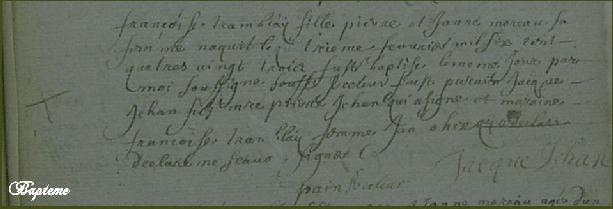 francoise tramblay fille pierre et Janne moreau sa
femme naquit le trieme fevrier mil six cent
quatres vingt trois fust baptise le meme Jour par
moi soussigne Recteur fust parain Jacque
Jehan filz pierre Jehan qui a signe et maraine
francoise tramblay femme Jan
declare ne scavoir signer
Jacque Jehan
Recteur
Janne moreau agee d'un
Bapteme